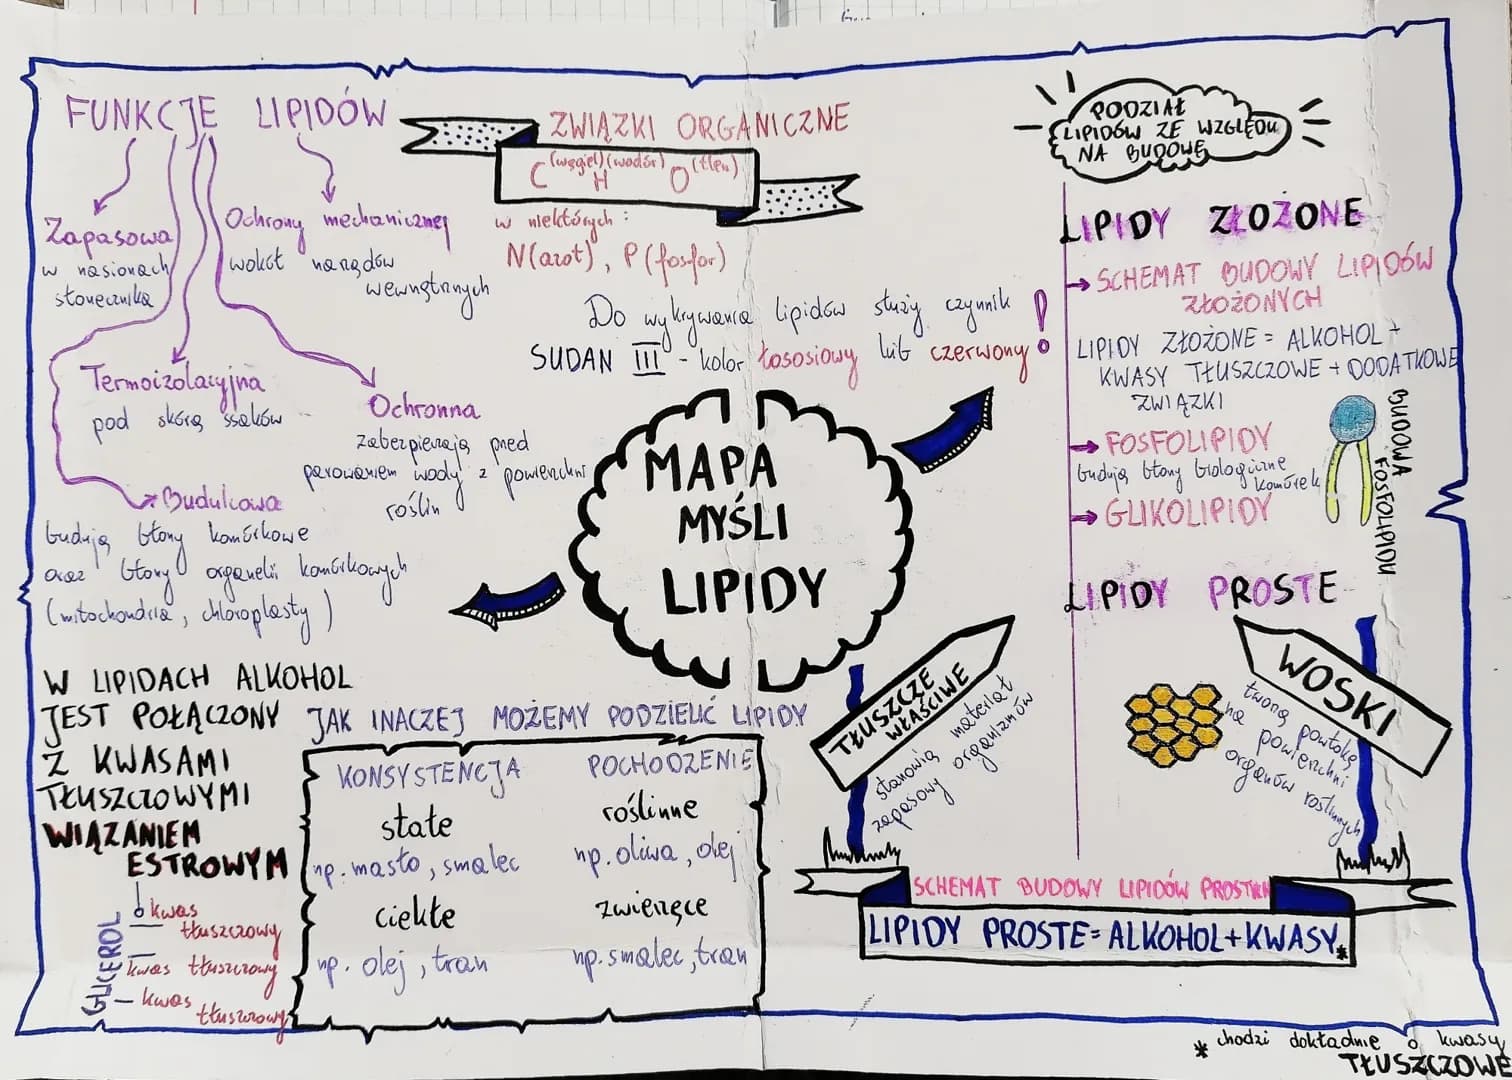 FUNKCJE LIPIDÓW
Zapasowa
w nasionach
słonecznika
Ochrony mechanicznej
wokół narządów
wewnętrznych
Termoizolacyjna
pod skórą ssaków
Ochronna
zabezpieczają przed
parowaniem wody z powierzchni
roślin
Budulcowa
budują błony komórkowe
oraz błony organelli komórkowych
(mitochondria, chloroplasty)
ZWIĄZKI ORGANICZNE
C (węgiel) H (wodór) O (tlen)
w niektórych:
N(azot), P(fosfor)
Do wykrywania lipidów służy czynnik
SUDAN III - kolor łososiowy lub czerwony!
MAPA
MYŚLI
LIPIDY
PODZIAŁ
LIPIDÓW ZE WZGLĘDU
NA BUDOWĘ
LIPIDY ZŁOŻONE
SCHEMAT BUDOWY LIPIDÓW
ZŁOŻONYCH
LIPIDY ZŁOŻONE = ALKOHOL +
KWASY TŁUSZCZOWE + DODATKOWE
ZWIĄZKI
FOSFOLIPIDY
budują błony biologiczne
komórek
GLIKOLIPIDY
BUDOWA
FOSFOLIPIDU
LIPIDY PROSTE
TŁUSZCZE
WŁAŚCIWE
stanowią materiał
zapasowy organizmów
WOSKI
tworzą powłokę
na powierzchni
organów roślinnych
SCHEMAT BUDOWY LIPIDÓW PROSTYCH
LIPIDY PROSTE = ALKOHOL + KWASY*
* chodzi dokładnie o kwasy
TŁUSZCZOWE
W LIPIDACH ALKOHOL
JEST POŁĄCZONY
Z KWASAMI
TŁUSZCZOWYMI
WIĄZANIEM
ESTROWYM
GLICEROL
kwas
tłuszczowy
kwas tłuszczowy
kwas
tłuszczowy
JAK INACZEJ MOŻEMY PODZIELIĆ LIPIDY
KONSYSTENCJA
stałe
np. masło, smalec
ciekłe
np. olej, tran
POCHODZENIE
roślinne
np. oliwa, olej
zwierzęce
np. smalec, tran